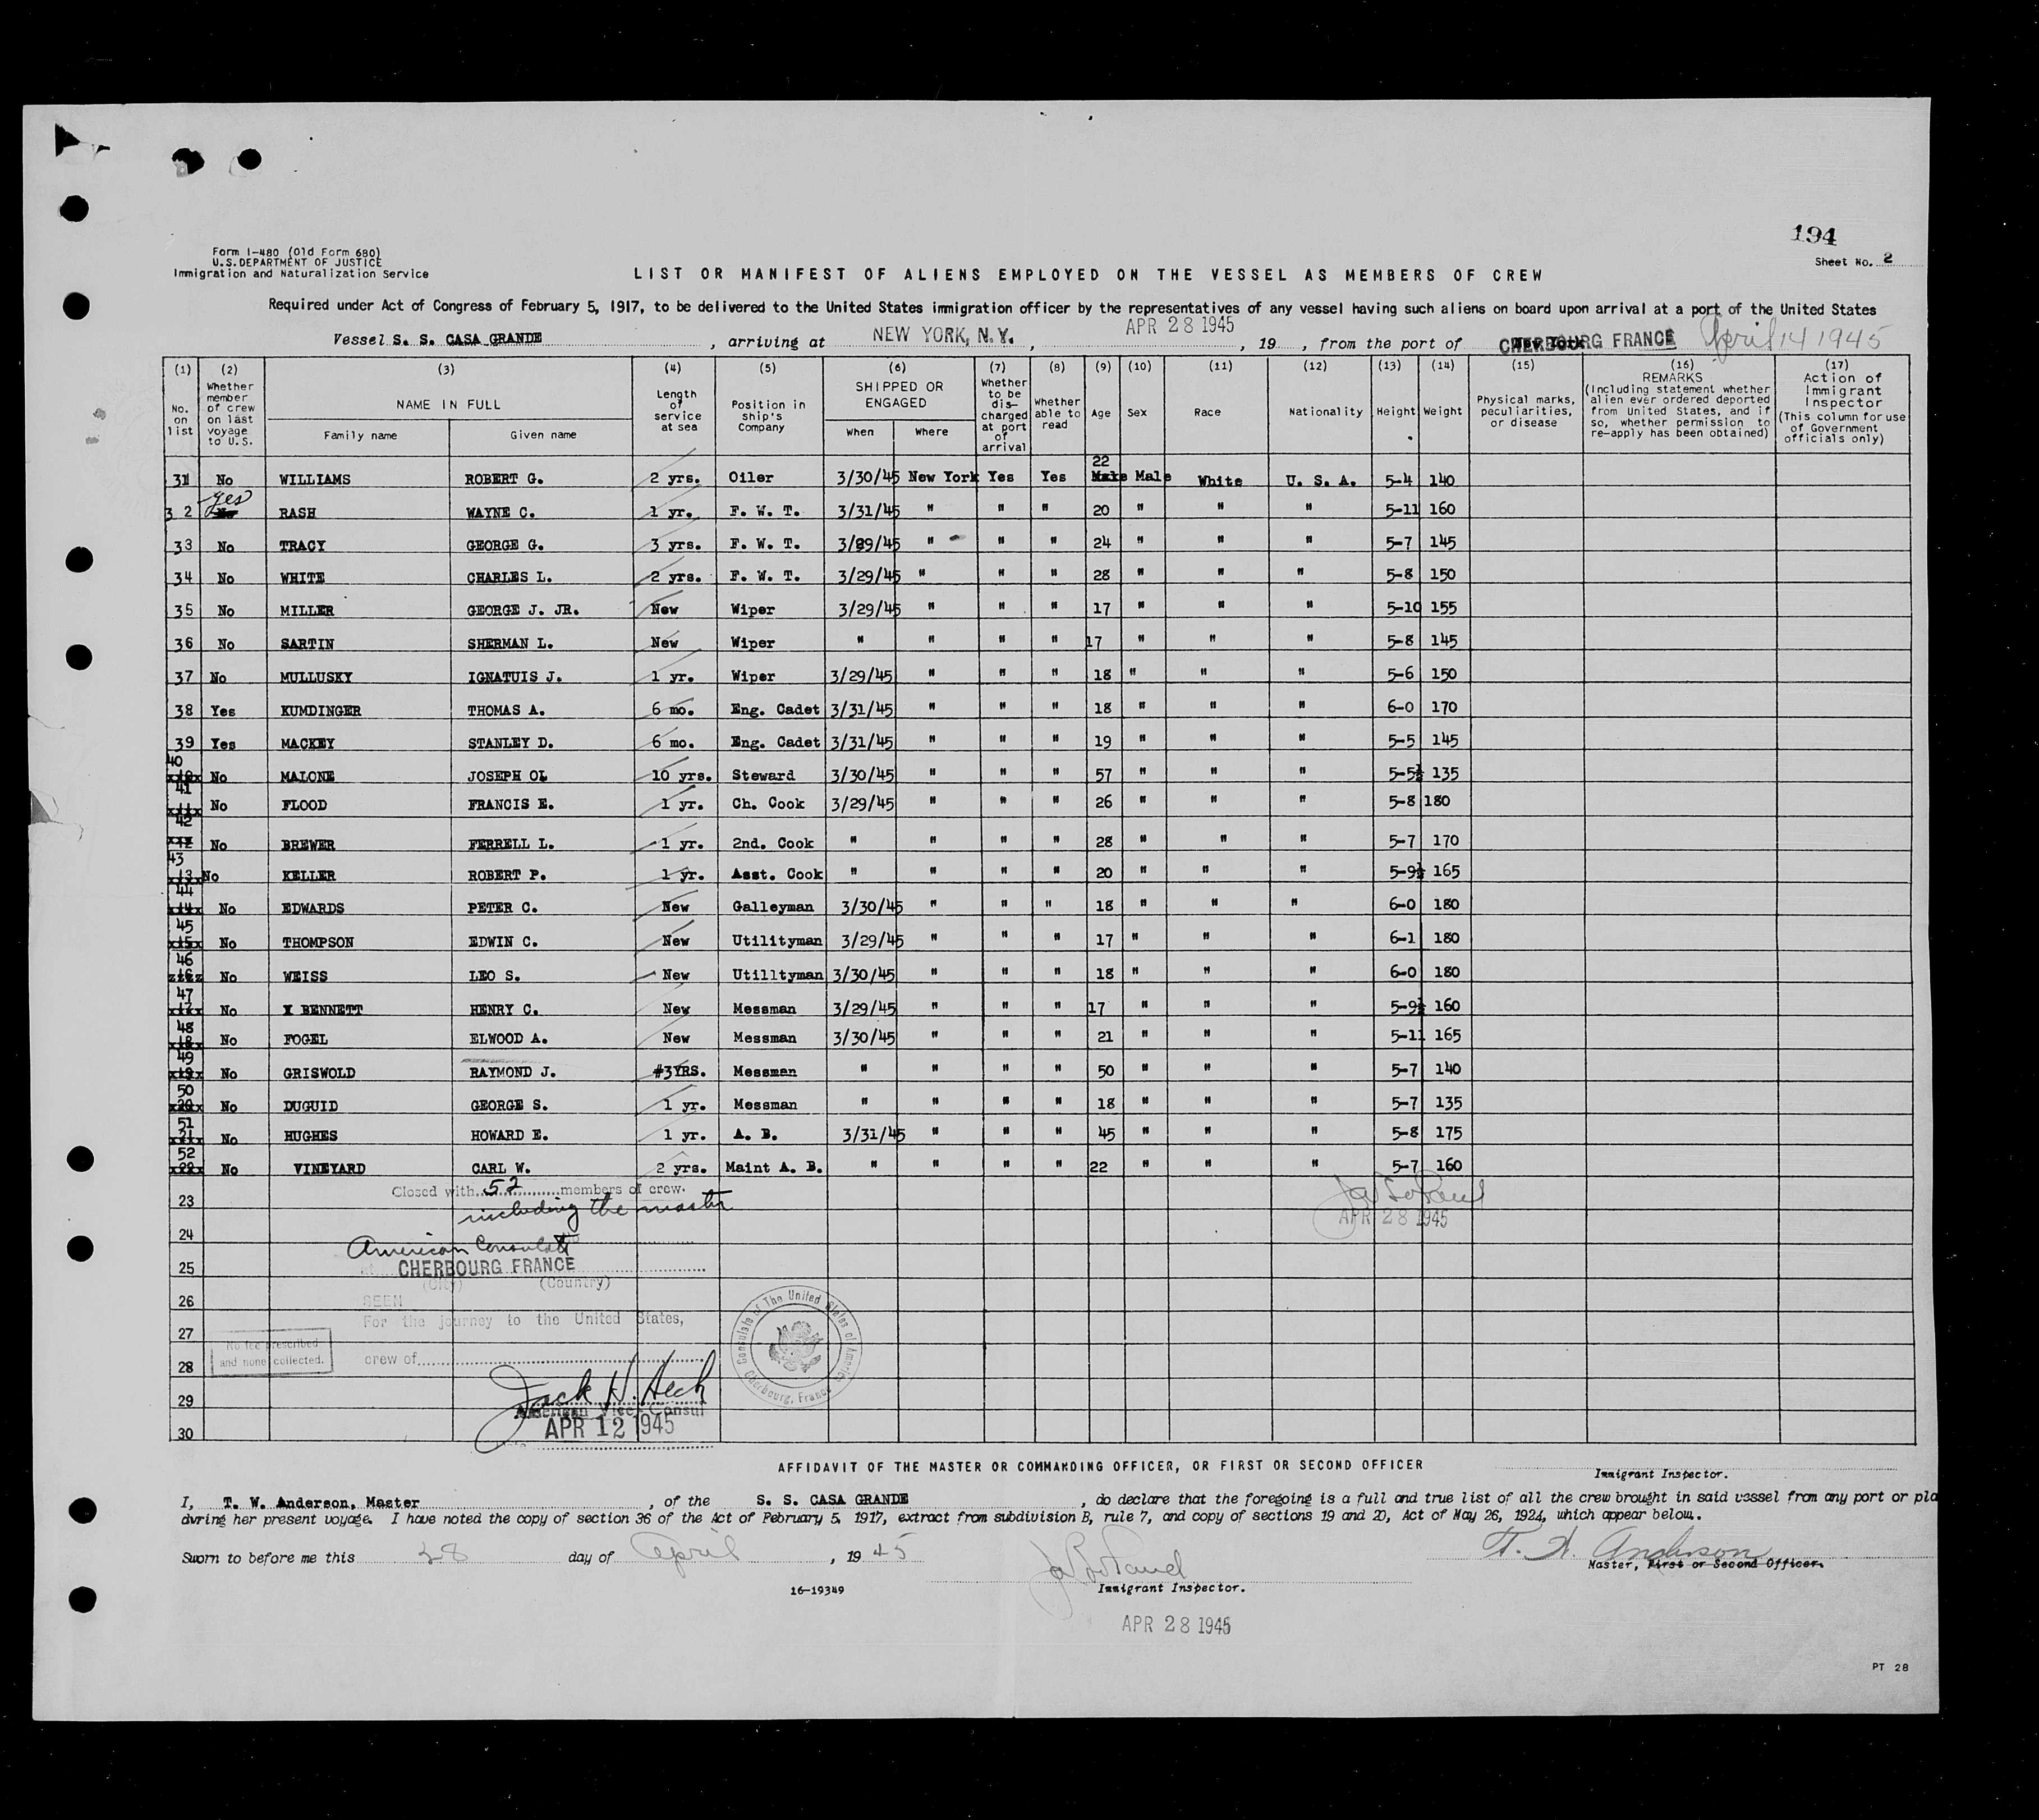 194
Form I-480 (Old Form 680)
U.S. DEPARTMENT OF JUSTICE
Immigration and Naturalization Service
Sheet No. 2
LIST OR MANIFEST OF ALIENS EMPLOYED ON THE VESSEL AS MEMBERS OF CREW
Required under Act of Congress of February 5, 1917, to be delivered to the United States immigration officer by the representatives of any vessel having such aliens on board upon arrival at a port of the United States
Vessel S. S. CASA GRANDE, arriving at NEW YORK, N.Y., APR 28 1945, 19, from the port of CHERBOURG FRANCE April 14 1945
(1) (2) (3) (4) (5) (6) (7) (8) (9) (10) (11) (12) (13) (14) (15) (16) (17)
No. on list | Whether member of crew on last voyage to U.S. | NAME IN FULL Family name Given name | Length of service at sea | Position in ship's Company | SHIPPED OR ENGAGED When Where | Whether to be discharged at port of arrival | Whether able to read | Age | Sex | Race | Nationality | Height | Weight | Physical marks, peculiarities, or disease | REMARKS (Including statement whether alien ever ordered deported from United States, and if so, whether permission to re-apply has been obtained) | Action of Immigrant Inspector (This column for use of Government officials only)
31 No WILLIAMS ROBERT G. 2 yrs. Oiler 3/30/45 New York Yes Yes 22 Male White U. S. A. 5-4 140
32 Yes RASH WAYNE C. 1 yr. F. W. T. 3/31/45 " " " 20 " " " 5-11 160
33 No TRACY GEORGE G. 3 yrs. F. W. T. 3/29/45 " " " 24 " " " 5-7 145
34 No WHITE CHARLES L. 2 yrs. F. W. T. 3/29/45 " " " 28 " " " 5-8 150
35 No MILLER GEORGE J. JR. New Wiper 3/29/45 " " " 17 " " " 5-10 155
36 No SARTIN SHERMAN L. New Wiper " " " " 17 " " " 5-8 145
37 No MULLUSKY IGNATUIS J. 1 yr. Wiper 3/29/45 " " " 18 " " " 5-6 150
38 Yes KUMDINGER THOMAS A. 6 mo. Eng. Cadet 3/31/45 " " " 18 " " " 6-0 170
39 Yes MACKEY STANLEY D. 6 mo. Eng. Cadet 3/31/45 " " " 19 " " " 5-5 145
40 No MALONE JOSEPH OL 10 yrs. Steward 3/30/45 " " " 57 " " " 5-5½ 135
41 No FLOOD FRANCIS E. 1 yr. Ch. Cook 3/29/45 " " " 26 " " " 5-8 180
42 No BREWER FERRELL L. 1 yr. 2nd. Cook " " " " 28 " " " 5-7 170
43 No KELLER ROBERT P. 1 yr. Asst. Cook " " " " 20 " " " 5-9½ 165
44 No EDWARDS PETER C. New Galleyman 3/30/45 " " " 18 " " " 6-0 180
45 No THOMPSON EDWIN C. New Utilityman 3/29/45 " " " 17 " " " 6-1 180
46 No WEISS LEO S. New Utilltyman 3/30/45 " " " 18 " " " 6-0 180
47 No X BENNETT HENRY C. New Messman 3/29/45 " " " 17 " " " 5-9½ 160
48 No FOGEL ELWOOD A. New Messman 3/30/45 " " " 21 " " " 5-11 165
49 No GRISWOLD RAYMOND J. #3YRS. Messman " " " " 50 " " " 5-7 140
50 No DUGUID GEORGE S. 1 yr. Messman " " " " 18 " " " 5-7 135
51 No HUGHES HOWARD E. 1 yr. A. B. 3/31/45 " " " 45 " " " 5-8 175
52 No VINEYARD CARL W. 2 yrs. Maint A. B. " " " " 22 " " " 5-7 160
Closed with 52 members of crew.
23 including the master
APR 28 1945
24 American Consulate
25 at CHERBOURG FRANCE
(City) (Country)
26 SEEN
For the journey to the United States,
27
No fee prescribed and none collected.
28 crew of
Consulate of The United States of America Cherbourg, France
29 Jack H. Heck
American Vice Consul
30 APR 12 1945
AFFIDAVIT OF THE MASTER OR COMMANDING OFFICER, OR FIRST OR SECOND OFFICER
Immigrant Inspector.
I, T. W. Anderson, Master, of the S. S. CASA GRANDE, do declare that the foregoing is a full and true list of all the crew brought in said vessel from any port or pla
during her present voyage. I have noted the copy of section 36 of the Act of February 5, 1917, extract from subdivision B, rule 7, and copy of sections 19 and 20, Act of May 26, 1924, which appear below.
Sworn to before me this 28 day of April, 1945
T. W. Anderson
Master, First or Second Officer.
16-19349
Immigrant Inspector.
APR 28 1945
PT 28